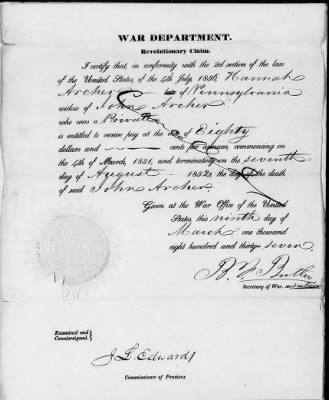 WAR DEPARTMENT.
Revolutionary Claim.
I certify that, in conformity with the 2d section of the law
of the United States, of the 4th July, 1836, Hannah
Archer late of Pennsylvania
widow of John Archer
who was a Private
is entitled to receive pay at the of Eighty
dollars and cents per annum, commencing on
the 4th of March, 1831, and terminating on the seventh
day of August 1832, the day of the death
of said John Archer.
Given at the War Office of the United
States, this ninth day of
March one thousand
eight hundred and thirty-seven
B. F. Butler
Secretary of War, ad interim
Examined and
Countersigned.
J. L. Edwards
Commissioner of Pensions